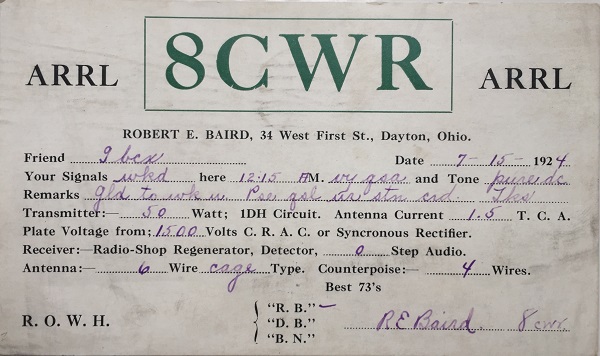 ARRL 8CWR ARRL
ROBERT E. BAIRD, 34 West First St., Dayton, Ohio.
Friend 9bcx Date 7-15-1924
Your Signals wkd here 12:15 AM. vy qsa and Tone pure dc
Remarks Gld to wk u Pse qsl via stn crd Tks
Transmitter:— 50 Watt; 1DH Circuit. Antenna Current 1.5 T. C. A.
Plate Voltage from; 1500 Volts C. R. A. C. or Syncronous Rectifier.
Receiver:—Radio-Shop Regenerator, Detector, 0 Step Audio.
Antenna:— 6 Wire cage Type. Counterpoise:— 4 Wires.
Best 73's
R. O. W. H. { "R. B." –
"D. B."
"B. N."
RE Baird. 8cwr.